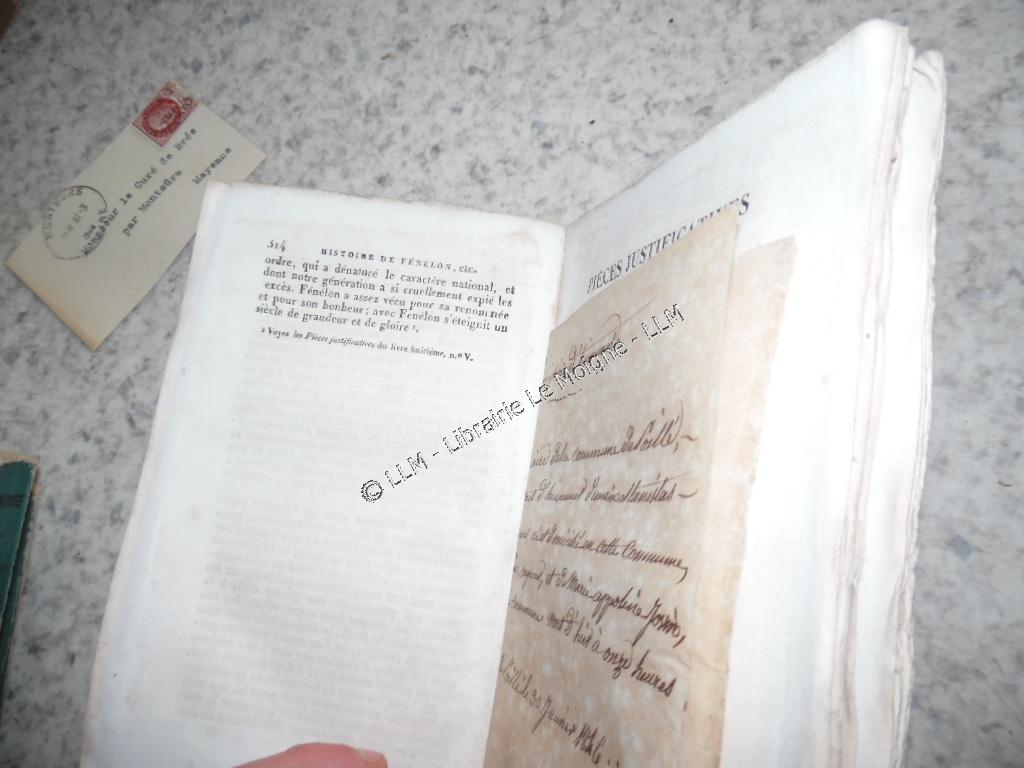 Monsieur le Curé de Brée
par Montsûrs
Mayenne
MONTSURS
514 HISTOIRE DE FÉNELON, etc.
ordre, qui a dénaturé le caractère national, et
dont notre génération a si cruellement expié les
excès. Fénélon a assez vécu pour sa renommée
et pour son bonheur; avec Fénélon s'éteignit un
siècle de grandeur et de gloire ¹.
¹ Voyez les Pièces justificatives du livre huitième, n.º V.
PIÈCES JUSTIFICATIVES
de la Commune de
Stanislas
et domicilié en cette Commune,
et de Marie appoline
mort d'huit à onze heures
le 30 Janvier
© LLM - Librairie Le Moigne - LLM